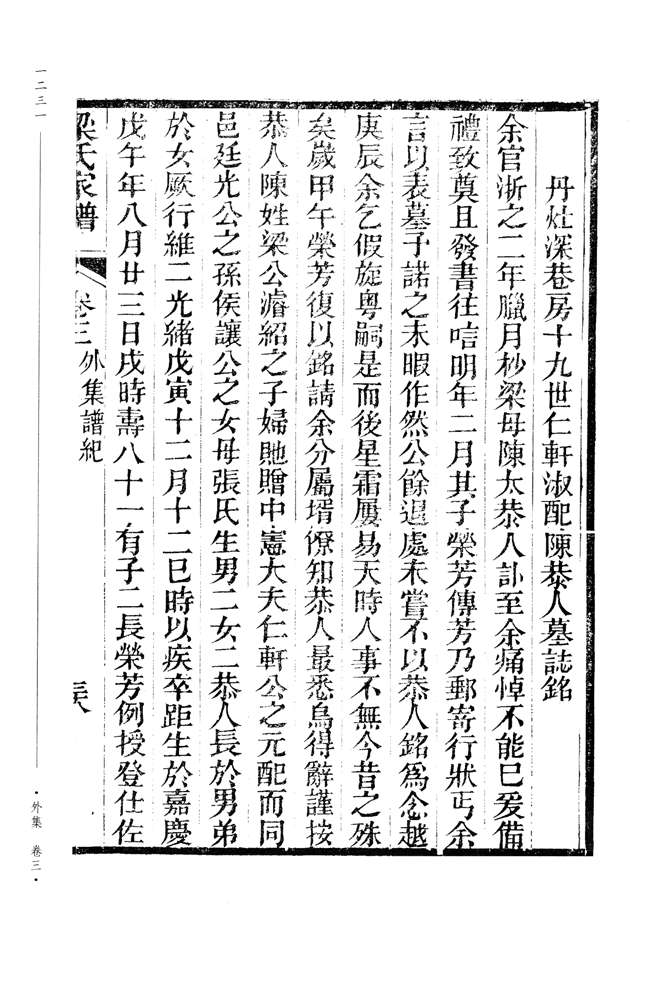 丹灶深巷房十九世仁軒淑配陳恭人墓誌銘
余官浙之二年臘月杪梁母陳太恭人訃至余痛悼不能已爰備
禮致奠且發書往唁明年二月其子榮芳傳芳乃郵寄行狀丐余
言以表墓予諾之未暇作然公餘退處未嘗不以恭人銘為念越
庚辰余乞假旋粵嗣是而後星霜屢易天時人事不無今昔之殊
矣歲甲午榮芳復以銘請余分屬壻僚知恭人最悉烏得辭謹按
恭人陳姓梁公濬紹之子婦貤贈中憲大夫仁軒公之元配而同
邑廷光公之孫侯讓公之女母張氏生男二女二恭人長於男弟
於女厥行維二光緒戊寅十二月十二巳時以疾卒距生於嘉慶
戊午年八月廿三日戌時壽八十一有子二長榮芳例授登仕佐
梁氏家譜 卷三 外集譜紀
一二三一
・外集 卷三・